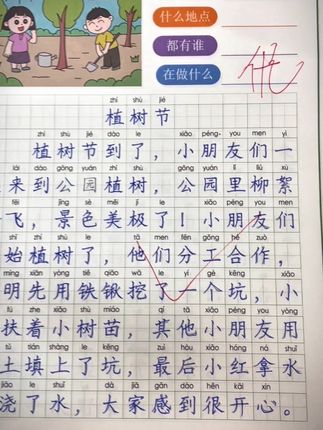 什么地点
都有谁
在做什么
优
zhí shù jié
植树节
zhí shù jié dào le xiǎo péng- you men yì
植树节到了，小朋友们一
lái dào gōng yuán zhí shù gōng yuán lǐ liǔ xù
来到公园植树，公园里柳絮
fēi jǐng sè měi jí le xiǎo péng you men
飞，景色美极了！小朋友们
shǐ zhí shù le tā men fēn gōng hé zuò
始植树了，他们分工合作，
míng xiān yòng tiě qiāo wā le yí gè kēng xiǎo
明先用铁锹挖了一个坑，小
fú zhe xiǎo shù miáo qí tā xiǎo péng you yòng
扶着小树苗，其他小朋友用
tǔ tián shàng le kēng zuì hòu xiǎo hóng ná shuǐ
土填上了坑，最后小红拿水
jiāo le shuǐ dà jiā gǎn dào hěn kāi xīn
浇了水，大家感到很开心。